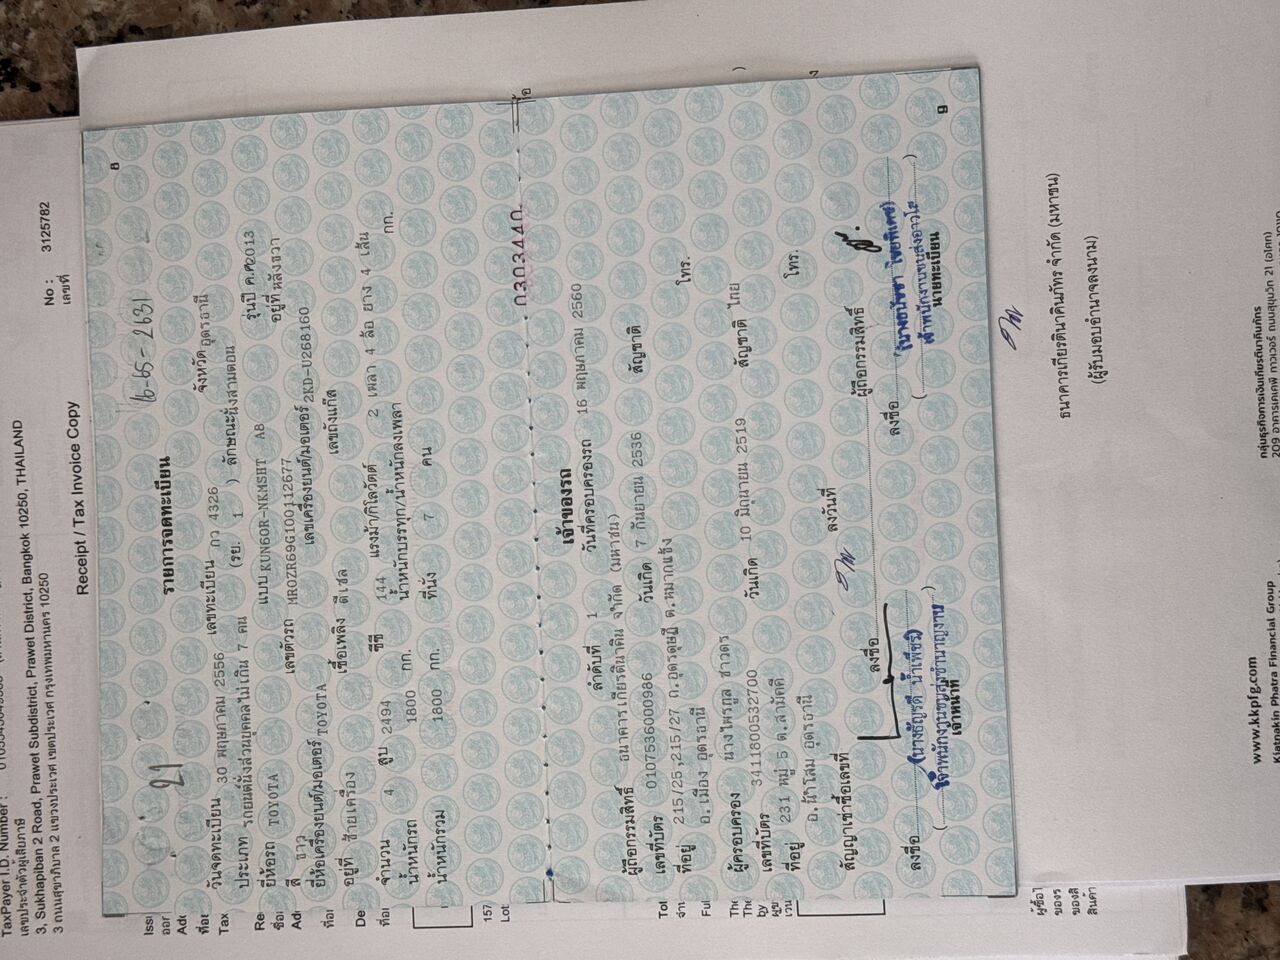 TaxPayer I.D. Number :
เลขประจำตัวผู้เสียภาษี
3, Sukhapiban 2 Road, Prawet Subdistrict, Prawet District, Bangkok 10250, THAILAND
3 ถนนสุขาภิบาล 2 แขวงประเวศ เขตประเวศ กรุงเทพมหานคร 10250
No : 3125782
เลขที่
Receipt / Tax Invoice Copy
8
21
16-65-2631
รายการจดทะเบียน
วันจดทะเบียน 30 พฤษภาคม 2556 เลขทะเบียน กว 4326 จังหวัด อุดรธานี
ประเภท รถยนต์นั่งส่วนบุคคลไม่เกิน 7 คน (รย. 1 ) ลักษณะนั่งสามตอน
ยี่ห้อรถ TOYOTA แบบ KUN60R-NKMSHT AB รุ่นปี ค.ศ. 2013
สี ขาว เลขตัวรถ MR0ZR69G100112677 อยู่ที่ หลังขวา
ยี่ห้อเครื่องยนต์/มอเตอร์ TOYOTA เลขเครื่องยนต์/มอเตอร์ 2KD-U268160
อยู่ที่ ซ้ายเครื่อง เชื้อเพลิง ดีเซล เลขถังแก๊ส
จำนวน 4 สูบ 2494 ซีซี 144 แรงม้า/กิโลวัตต์ 2 เพลา 4 ล้อ ยาง 4 เส้น
น้ำหนักรถ 1800 กก. น้ำหนักบรรทุก/น้ำหนักลงเพลา กก.
น้ำหนักรวม 1800 กก. ที่นั่ง 7 คน
ก3034400
เจ้าของรถ
ลำดับที่ 1 วันที่ครอบครองรถ 16 พฤษภาคม 2560
ผู้ถือกรรมสิทธิ์ ธนาคารเกียรตินาคิน จำกัด (มหาชน)
เลขที่บัตร 0107536000986 วันเกิด 7 กันยายน 2536 สัญชาติ
ที่อยู่ 215/25,215/27 ถ.อุดรดุษฎี ต.หมากแข้ง
อ.เมือง อุดรธานี โทร.
ผู้ครอบครอง นางไพรกูล ชาวดร
เลขที่บัตร 3411800532700 วันเกิด 10 มิถุนายน 2519 สัญชาติ ไทย
ที่อยู่ 231 หมู่ 5 ต.สามัคคี
อ.น้ำโสม อุดรธานี โทร.
สัญญาเช่าซื้อเลขที่ ลงวันที่
ลงชื่อ ผู้ถือกรรมสิทธิ์
ลงชื่อ ลงชื่อ
(นางธัญรดี น้ำเพชร)
เจ้าพนักงานขนส่งชำนาญงาน
เจ้าหน้าที่
นายทะเบียน
9
ธนาคารเกียรตินาคินภัทร จำกัด (มหาชน)
(ผู้รับมอบอำนาจลงนาม)
www.kkpfg.com
Kiatnakin Phatra Financial Group
กลุ่มธุรกิจการเงินเกียรตินาคินภัทร
209 อาคารเคเคพี ทาวเวอร์ ถนนสุขุมวิท 21 (อโศก)